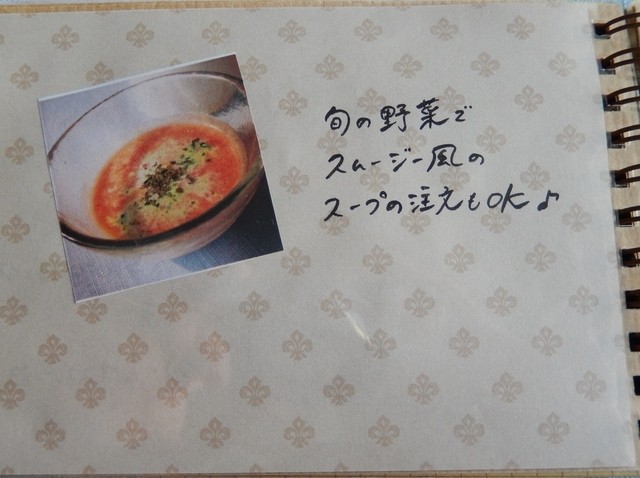 旬の野菜で
スムージー風の
スープの注文もOK♪